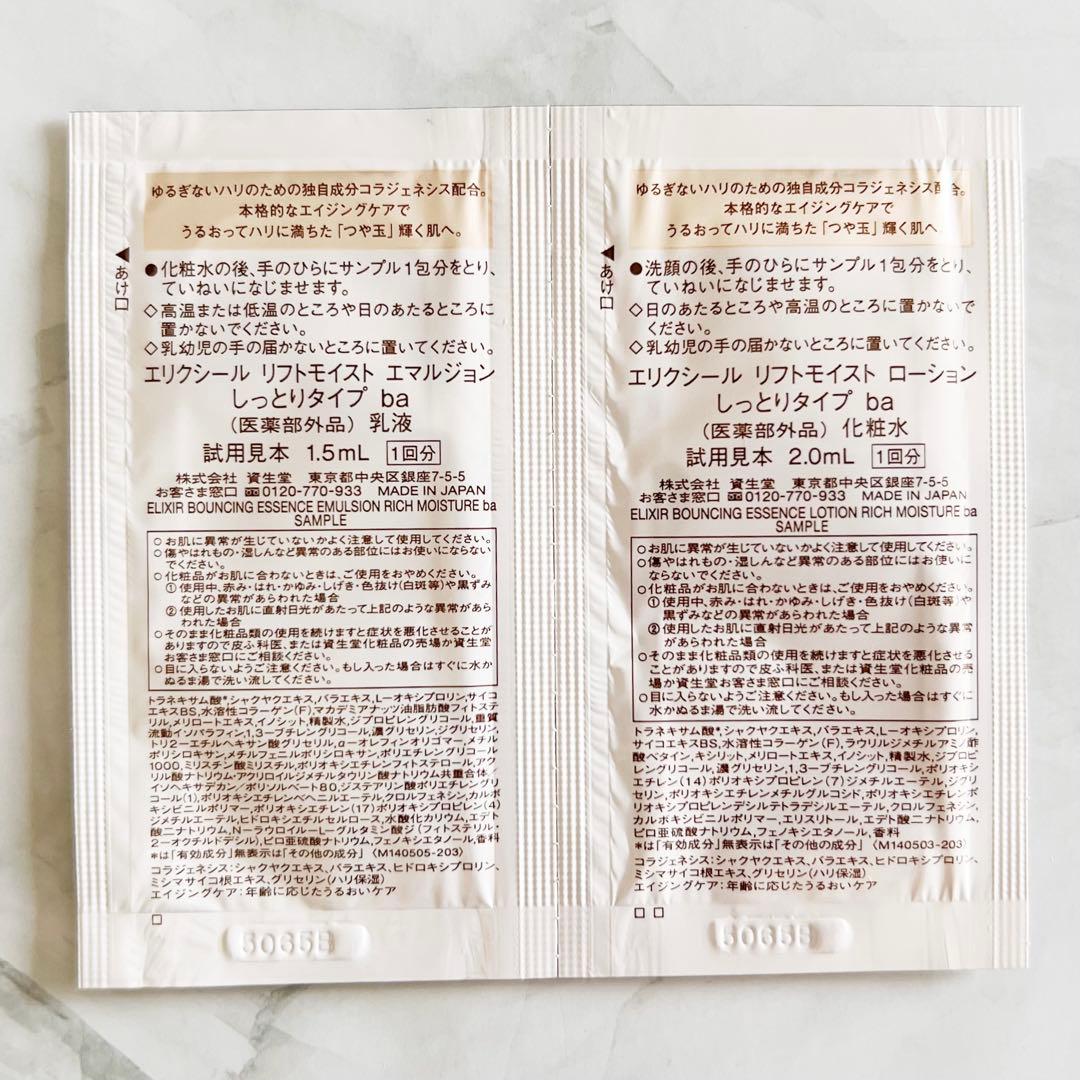 ゆるぎないハリのための独自成分コラジェネシス配合。
本格的なエイジングケアで
うるおってハリに満ちた「つや玉」輝く肌へ。
あけ口
●化粧水の後、手のひらにサンプル1包分をとり、
ていねいになじませます。
◇高温または低温のところや日のあたるところに
置かないでください。
◇乳幼児の手の届かないところに置いてください。
エリクシール リフトモイスト エマルジョン
しっとりタイプ ba
（医薬部外品）乳液
試用見本 1.5mL 1回分
株式会社 資生堂 東京都中央区銀座7-5-5
お客さま窓口 0120-770-933 MADE IN JAPAN
ELIXIR BOUNCING ESSENCE EMULSION RICH MOISTURE ba
SAMPLE
○お肌に異常が生じていないかよく注意して使用してください。
○傷やはれもの・湿しんなど異常のある部位にはお使いにならない
でください。
○化粧品がお肌に合わないときは、ご使用をおやめください。
①使用中、赤み・はれ・かゆみ・しげき・色抜け(白斑等)や黒ずみ
などの異常があらわれた場合
②使用したお肌に直射日光があたって上記のような異常があら
われた場合
○そのまま化粧品類の使用を続けますと症状を悪化させることが
ありますので皮ふ科医、または資生堂化粧品の売場か資生堂
お客さま窓口にご相談ください。
○目に入らないようご注意ください。もし入った場合はすぐに水か
ぬるま湯で洗い流してください。
トラネキサム酸*,シャクヤクエキス,バラエキス,L-オキシプロリン,サイコ
エキスBS,水溶性コラーゲン(F),マカデミアナッツ油脂肪酸フィトステ
リル,メリロートエキス,イノシット,精製水,ジプロピレングリコール,重質
流動イソパラフィン,1,3-ブチレングリコール,濃グリセリン,ジグリセリン,
トリ2-エチルヘキサン酸グリセリル,α-オレフィンオリゴマー,メチル
ポリシロキサン,メチルフェニルポリシロキサン,ポリエチレングリコール
1000,ミリスチン酸ミリスチル,ポリオキシエチレンフィトステロール,アク
リル酸ナトリウム・アクリロイルジメチルタウリン酸ナトリウム共重合体/
イソヘキサデカン/ポリソルベート80,ジステアリン酸ポリエチレングリ
コール(1),ポリオキシエチレンベヘニルエーテル,クロルフェネシン,カルボ
キシビニルポリマー,ポリオキシエチレン(17)ポリオキシプロピレン(4)
ジメチルエーテル,ヒドロキシエチルセルロース,水酸化カリウム,エデト
酸二ナトリウム,N-ラウロイル-L-グルタミン酸ジ(フィトステリル・
2-オクチルドデシル),ピロ亜硫酸ナトリウム,フェノキシエタノール,香料
*は「有効成分」無表示は「その他の成分」〈M140505-203〉
コラジェネシス:シャクヤクエキス、バラエキス、ヒドロキシプロリン、
ミシマサイコ根エキス、グリセリン(ハリ保湿)
エイジングケア:年齢に応じたうるおいケア
5065B
ゆるぎないハリのための独自成分コラジェネシス配合。
本格的なエイジングケアで
うるおってハリに満ちた「つや玉」輝く肌へ
あけ口
●洗顔の後、手のひらにサンプル1包分をとり、
ていねいになじませます。
◇日のあたるところや高温のところに置かないで
ください。
◇乳幼児の手の届かないところに置いてください。
エリクシール リフトモイスト ローション
しっとりタイプ ba
（医薬部外品）化粧水
試用見本 2.0mL 1回分
株式会社 資生堂 東京都中央区銀座7-5-5
お客さま窓口 0120-770-933 MADE IN JAPAN
ELIXIR BOUNCING ESSENCE LOTION RICH MOISTURE ba
SAMPLE
○お肌に異常が生じていないかよく注意して使用してください。
○傷やはれもの・湿しんなど異常のある部位にはお使いに
ならないでください。
○化粧品がお肌に合わないときは、ご使用をおやめください。
①使用中、赤み・はれ・かゆみ・しげき・色抜け(白斑等)や
黒ずみなどの異常があらわれた場合
②使用したお肌に直射日光があたって上記のような異常
があらわれた場合
○そのまま化粧品類の使用を続けますと症状を悪化させる
ことがありますので皮ふ科医、または資生堂化粧品の売
場か資生堂お客さま窓口にご相談ください。
○目に入らないようご注意ください。もし入った場合はすぐに
水かぬるま湯で洗い流してください。
トラネキサム酸*,シャクヤクエキス,バラエキス,L-オキシプロリン,
サイコエキスBS,水溶性コラーゲン(F),ラウリルジメチルアミノ酢
酸ベタイン,キシリット,メリロートエキス,イノシット,精製水,ジプロピ
レングリコール,濃グリセリン,1,3-ブチレングリコール,ポリオキシ
エチレン(14)ポリオキシプロピレン(7)ジメチルエーテル,ジグリ
セリン,ポリオキシエチレンメチルグルコシド,ポリオキシエチレンポ
リオキシプロピレンデシルテトラデシルエーテル,クロルフェネシン,
カルボキシビニルポリマー,エリスリトール,エデト酸二ナトリウム,
ピロ亜硫酸ナトリウム,フェノキシエタノール,香料
*は「有効成分」無表示は「その他の成分」〈M140503-203〉
コラジェネシス:シャクヤクエキス、バラエキス、ヒドロキシプロリン、
ミシマサイコ根エキス、グリセリン(ハリ保湿)
エイジングケア:年齢に応じたうるおいケア
5065B